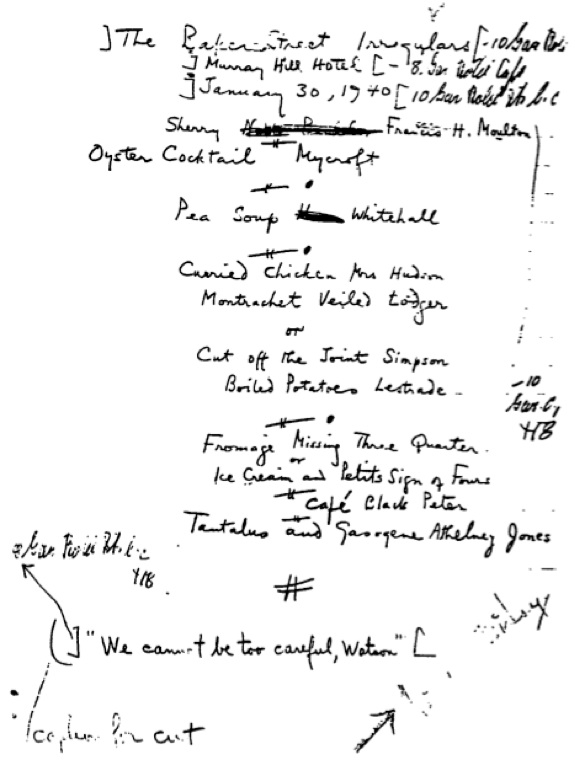 ] The Baker Street Irregulars [
] Murray Hill Hotel [
] January 30, 1940 [
Sherry Francis H. Moulton
Oyster Cocktail # Mycroft
#
Pea Soup Whitehall
#
Curried Chicken Mrs Hudson
Montrachet Veiled Lodger
or
Cut off the Joint Simpson
Boiled Potatoes Lestrade
-10
HB
#
Fromage Missing Three Quarter.
or
Ice Cream and Petits Sign of Fours
# Café Black Peter
#
Tantalus and Gasogene Athelney Jones
#
(] "We cannot be too careful, Watson" [
caption for cut